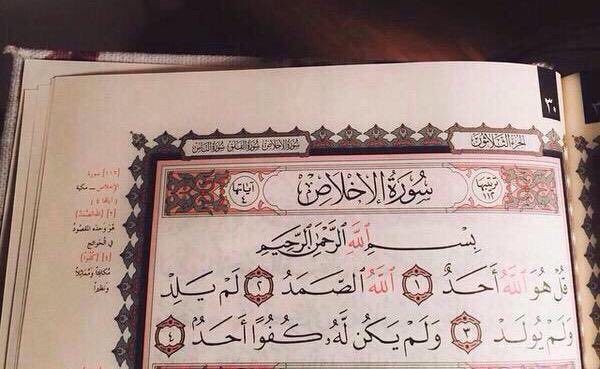 ٣٠
الجزء الثلاثون
سورة الإخلاص سورة الفلق سورة الناس
ترتيبها ١١٢
سُورَةُ الإِخْلَاصِ
آياتها ٤
بِسْمِ ٱللَّهِ ٱلرَّحْمَٰنِ ٱلرَّحِيمِ
قُلْ هُوَ ٱللَّهُ أَحَدٌ ١ ٱللَّهُ ٱلصَّمَدُ ٢ لَمْ يَلِدْ
وَلَمْ يُولَدْ ٣ وَلَمْ يَكُن لَّهُۥ كُفُوًا أَحَدٌۢ ٤
[١١٢] سورة
الإخلاص ــ مكية
(آياتها ٤)
[٢] ﴿ٱللَّهُ ٱلصَّمَدُ﴾
هُوَ وَحْدَه المَقْصُودُ
في الحَوائِج
[٤] ﴿كُفُوًا﴾
مُكافِئًا ومُمَاثِلًا
ونَظيرًا